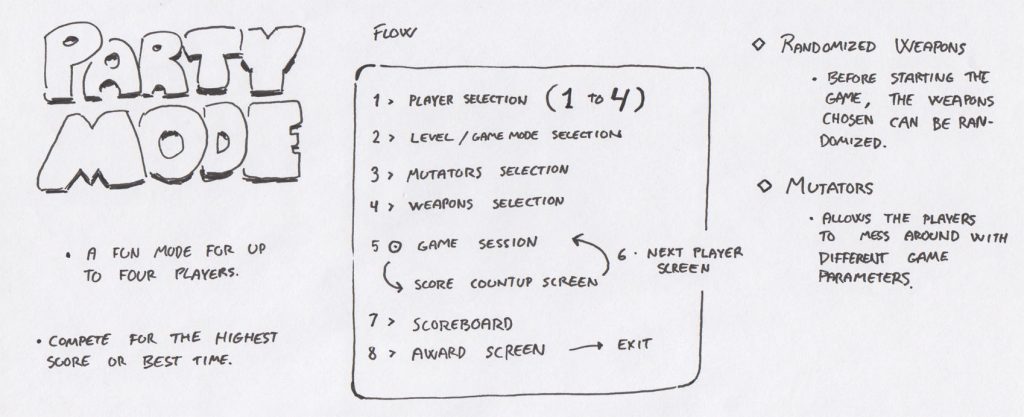 PARTY
MODE
• A FUN MODE FOR UP
TO FOUR PLAYERS.
• COMPETE FOR THE HIGHEST
SCORE OR BEST TIME.
FLOW
1 > PLAYER SELECTION (1 TO 4)
2 > LEVEL / GAME MODE SELECTION
3 > MUTATORS SELECTION
4 > WEAPONS SELECTION
5 GAME SESSION
SCORE COUNTUP SCREEN
6 • NEXT PLAYER
SCREEN
7 > SCOREBOARD
8 > AWARD SCREEN → EXIT
◇ RANDOMIZED WEAPONS
• BEFORE STARTING THE
GAME, THE WEAPONS
CHOSEN CAN BE RAN-
DOMIZED.
◇ MUTATORS
• ALLOWS THE PLAYERS
TO MESS AROUND WITH
DIFFERENT GAME
PARAMETERS.